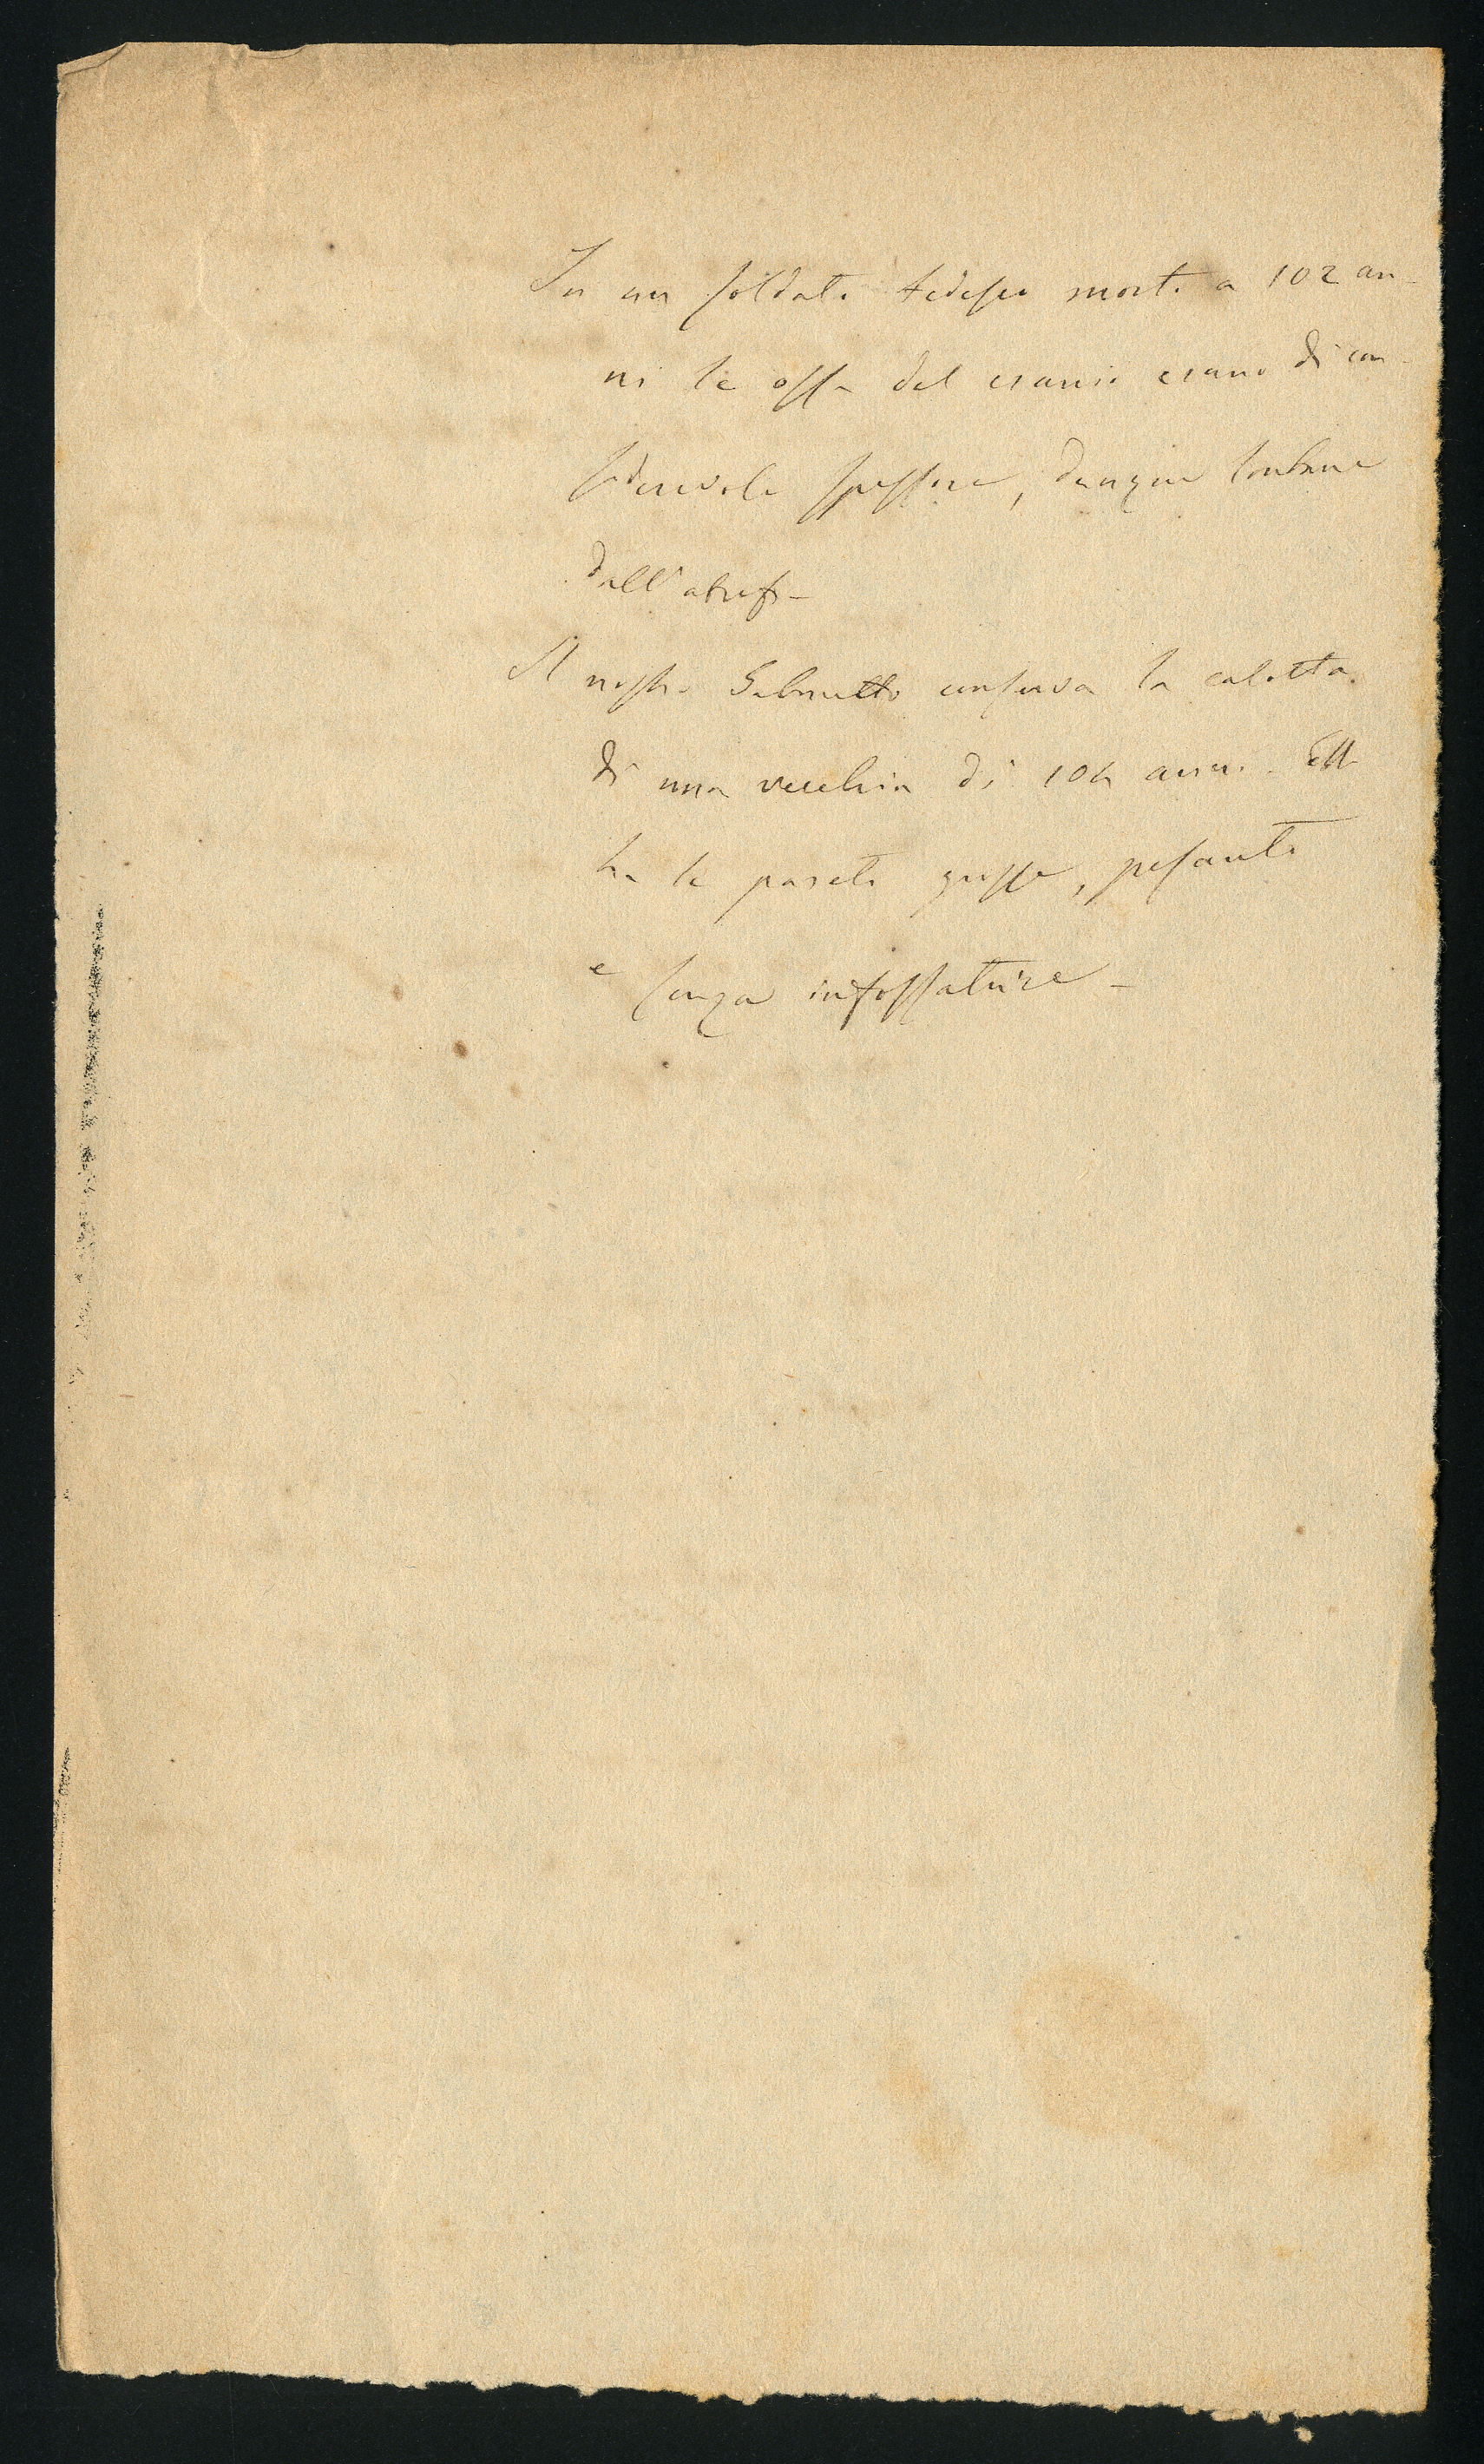 In un soldato tedesco morto a 102 an-
ni le ossa del cranio erano di con-
siderevole spessore, dunque lontane
dall'atrof-
Il nostro Gabinetto conserva la calotta
di una vecchia di 104 anni. Ella
ha le pareti grosse, pesanti
e senza infossature -